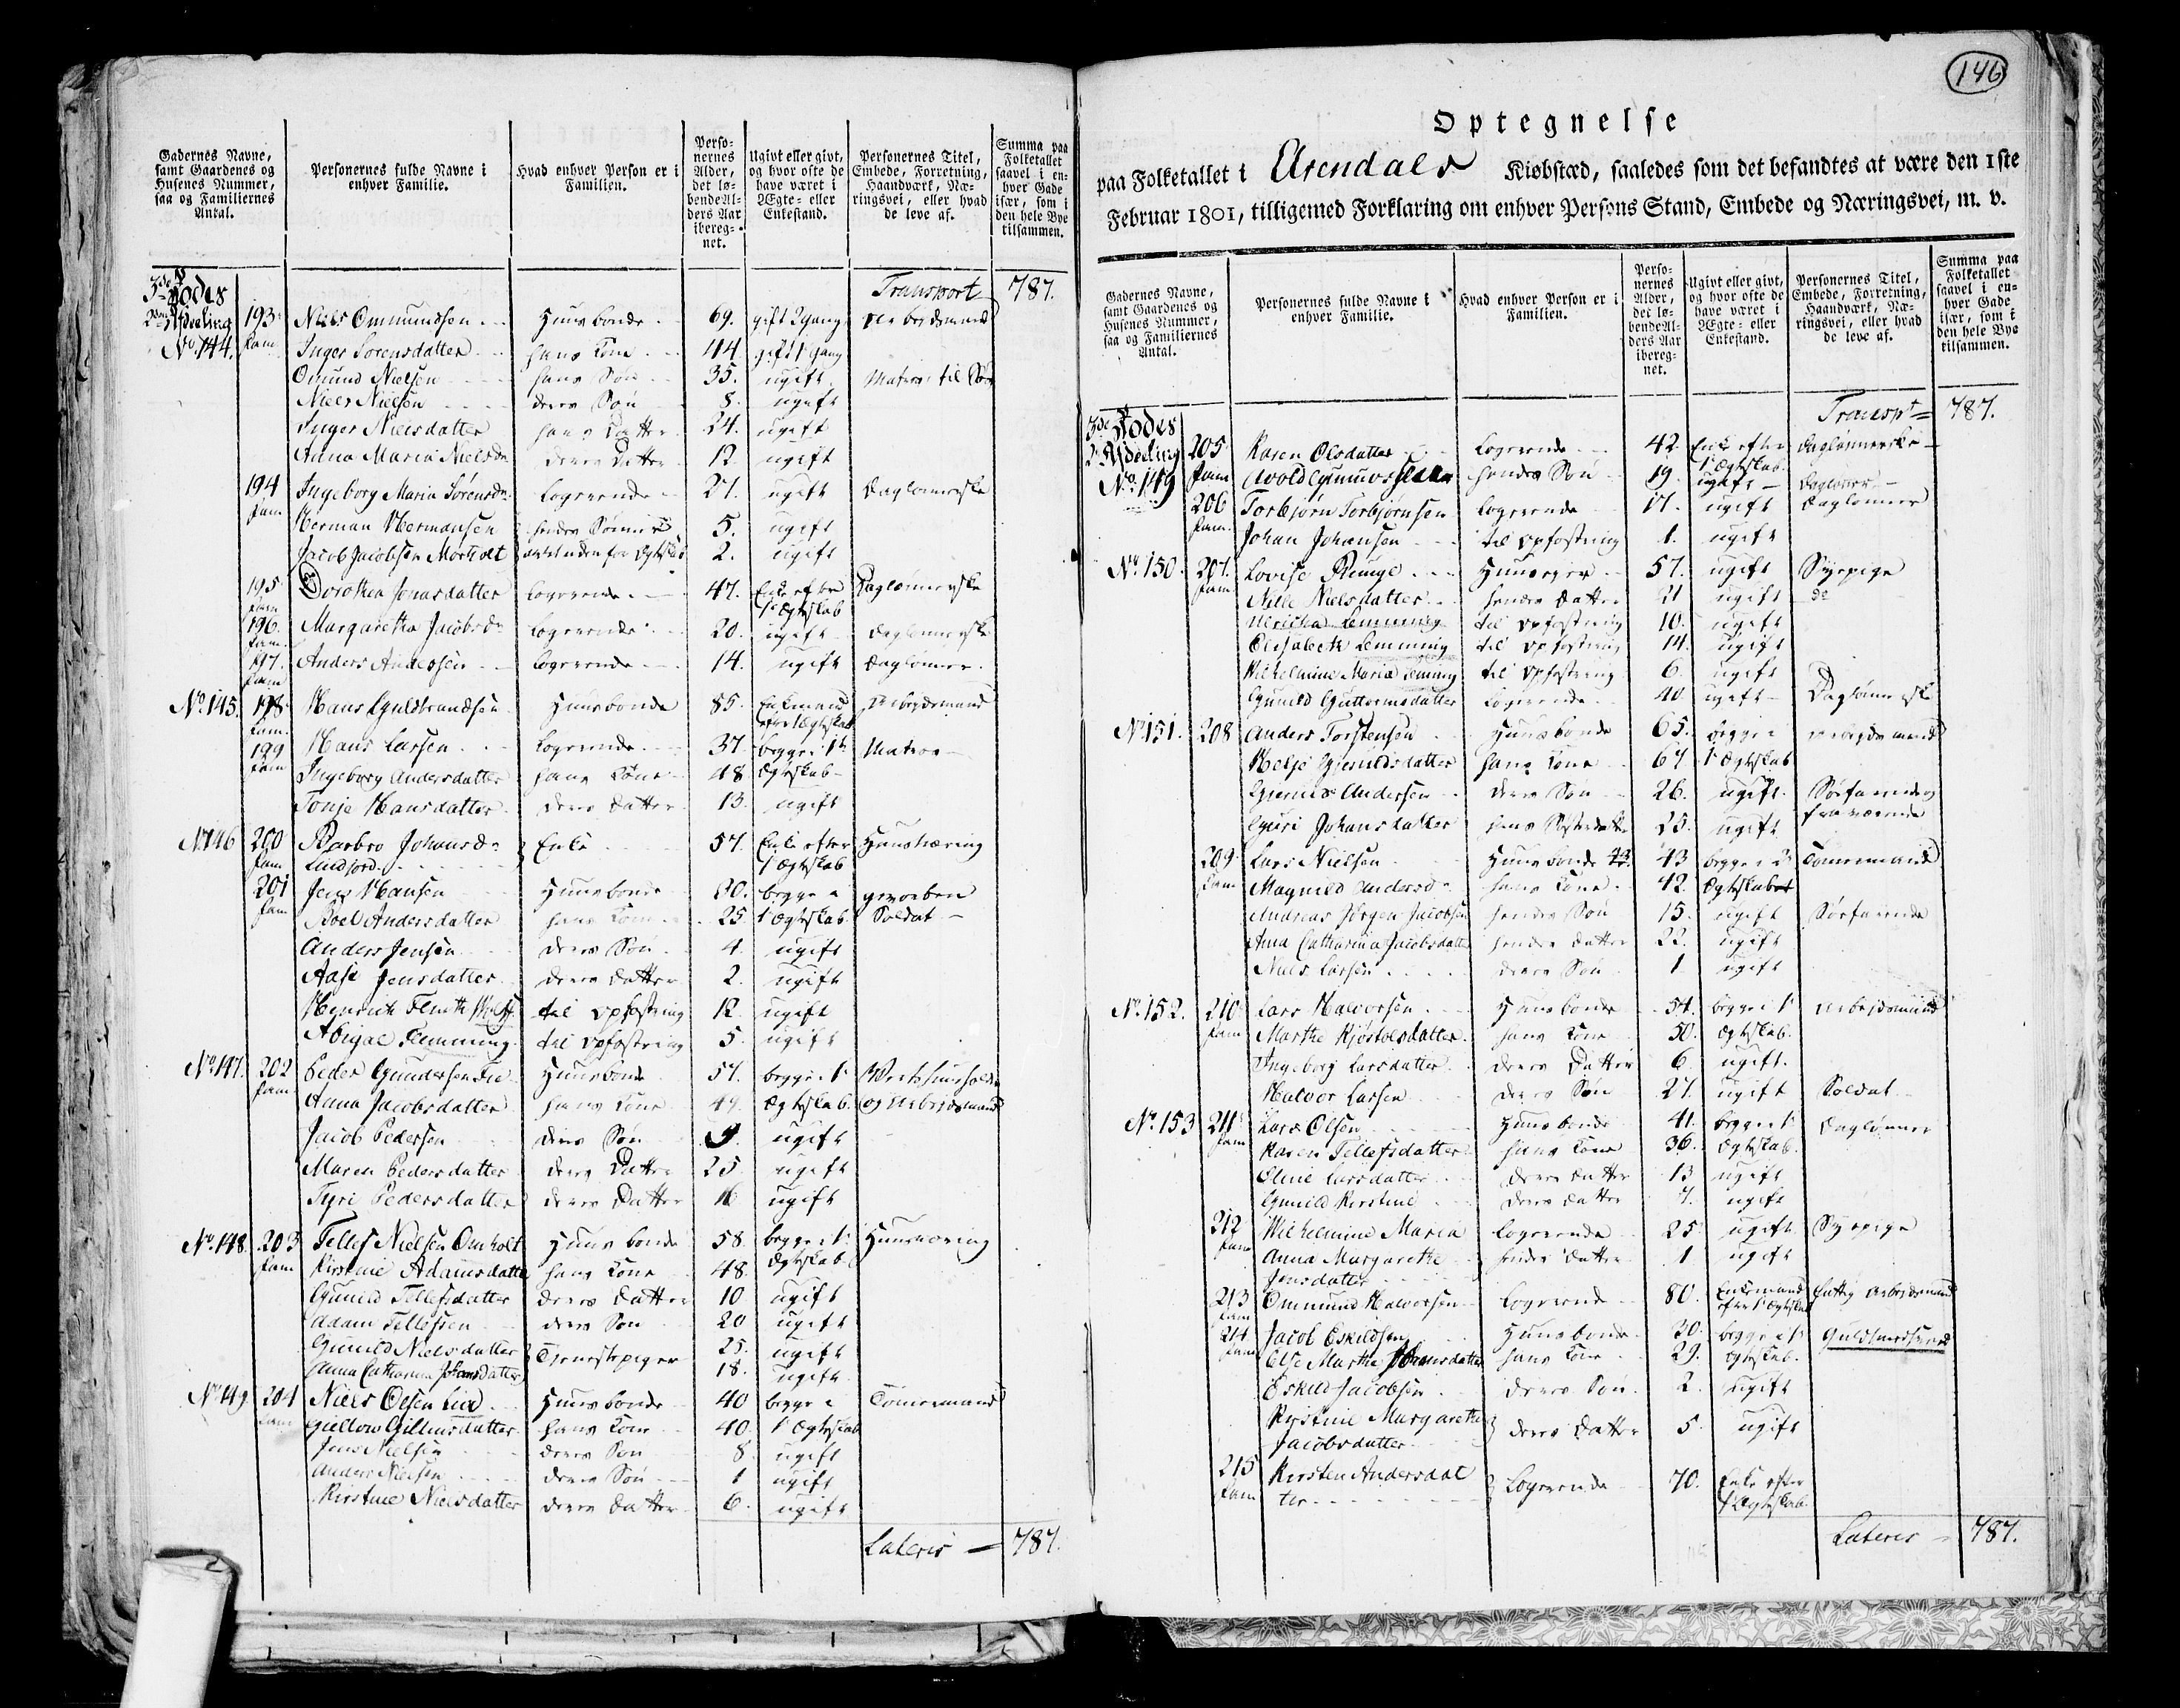 Gadernes Navne, samt Gaardenes og Husenes Nummer, saa og Familiernes Antal.
Personernes fulde Navne i enhver Familie.
Hvad enhver Person er i Familien.
Personernes Alder, det løbende Alders Aar iberegnet.
Ugivt eller givt, og hvor ofte de have været i Ægte- eller Enkestand.
Personernes Titel, Embede, Forretning, Haandværk, Næringsvei, eller hvad de leve af.
Summa paa Folketallet saavel i enhver Gade især, som i den hele Bye tilsammen.
3de Rodes Transport 787.
2den Afdeeling 193 Niels Ommundsen Huusbonde 69. gift 2 gang Arbejdsmand
No. 144. fam Inger Sørensdatter hans Kone 44 gift 1 gang
Omund Nielsen hans Søn 35. ugift Matros til Søs
Niels Nielsen deres Søn 8. ugift
Inger Nielsdatter hans Datter 24. ugift
Anna Maria Nielsdr deres Datter 12. ugift
194 fam Ingeborg Maria Sørensdr Logerende 27. ugift Daglønnerske
Herman Hermansen hendes Sønner 5. ugift
Jacob Jacobsen Mørtvet avlet uden for Ægteskab 2. ugift
195 fam Dorothea Jonasdatter Logerende 47. Enke efter 1ste Ægteskab Daglønnerske
196. fam. Margaretha Jacobsdr Logerende 20. ugift Daglønnerske
197. fam Anders Andersen Logerende 14. ugift Daglønner
No. 145. 198 fam. Hans Guldbrandsen Huusbonde 85. Enkemand efter 1 Ægteskab Arbejdsmand
199 fam Hans Larsen Logerende 37. begge i 1te Matros
Ingeborg Andersdatter hans Kone 48 Ægteskab
Tonje Hansdatter deres Datter 13. ugift
No 146 200 fam Barbro Johansdr Lindfjord Enke 57. Enke efter 1 Ægteskab Huusnæring
201 fam Jens Hansen Huusbonde 30. begge i gevorben
Boel Andersdatter hans Kone 25 1t Ægteskab Soldat
Anders Jensen deres Søn 4. ugift
Aase Jensdatter deres Datter 2. ugift
Henrich til Opfostring 12. ugift
Abigael Flemming til Opfostring 5. ugift
No. 147. 202 fam Peder Gundersen Huusbonde 57. begge i 1t Wertshuusholder
Anna Jacobsdatter hans Kone 49. Ægteskab. og Arbejdsmand
Jacob Pedersen deres Søn 9 ugift
Maren Pedersdatter deres Datter 25 ugift
Tyri Pedersdatter deres Datter 16 ugift
No. 148. 203 fam Tellef Nielsen Omholt Huusbonde 58. begge i 1t Huusnæring
Kirstine Adamsdatter hans Kone 48. Ægteskab
Gunild Tellefsdatter deres Datter 10 ugift
Adam Tellefsen deres Søn 20 ugift
Gunild Nielsdatter Tjenestepiger 25. ugift
Anna Catharina Johansdatter 18. ugift
No. 149. 204 fam Niels Olsen Lied Huusbonde 40 begge i Tømmermand
hans Kone 40. 1t Ægteskab
Jens Nielsen deres Søn 8 ugift
Anders Nielsen deres Søn 1 ugift
Kirstine Nielsdatter deres Datter 6. ugift
Lateris 787.
146
Optegnelse
paa Folketallet i Arendals Kiøbstæd, saaledes som det befandtes at være den 1ste
Februar 1801, tilligemed Forklaring om enhver Persons Stand, Embede og Næringsvei, m. v.
Gadernes Navne, samt Gaardenes og Husenes Nummer, saa og Familiernes Antal.
Personernes fulde Navne i enhver Familie.
Hvad enhver Person er i Familien.
Personernes Alder, det løbende Alders Aar iberegnet.
Ugivt eller givt, og hvor ofte de have været i Ægte- eller Enkestand.
Personernes Titel, Embede, Forretning, Haandværk, Næringsvei, eller hvad de leve af.
Summa paa Folketallet saavel i enhver Gade især, som i den hele Bye tilsammen.
3de Rodes Transpt 787.
2. Afdeeling 205 fam Karen Olsdatter Logerende 42 Enke efter 1t Ægteskab Daglønnerske
No. 149 hendes Søn 19. ugift Daglønner
206 fam. Torbjørn Torbjørnsen Logerende 17. ugift Daglønner
Johan Johansen til Opfostring 1. ugift
No. 150. 207. fam Lovise Runge Huuseyer 57. ugift Syepige
Nille Nielsdatter hendes Datter 21 ugift do
Ulricha Lemming til Opfostring 10. ugift
Elisabeth Lemming til Opfostring 14. ugift
Wilhelmine Maria Leming til Opfostring 6. ugift
Gunild Guttormsdatter Logerende 40 ugift Daglønnerske
No 151. 208 Anders Torstensen Huusbonde 65. begge i Arbejdsmand
Helje Gjeruldsdatter hans Kone 67 1t Ægteskab
Andersen deres Søn 26. ugift. Søefarende og
Guri Johansdatter hans Søsterdatter 25. ugift fraværende
209. fam Lars Nielsen Huusbonde 43 begge i 2t Tømmermand
Magnild Andersdr hans Kone 42. Ægteskab
Andreas Jørgen Jacobsen hendes Søn 15. ugift Søefarende
Ana Catharina Jacobsdatter hendes Datter 22. ugift
Niels Larsen deres Søn 1 ugift
No. 152. 210 fam Lars Halvorsen Huusbonde 54. begge i 1t Arbejdsmand
Marthe Kjøstolsdatter hans Kone 50. Ægteskab.
Ingeborg Larsdatter deres Datter 6 ugift.
Halvor Larsen deres Søn 27. ugift Soldat
No. 153 211 fam Lars Olsen Huusbonde 41. begge i 1t Daglønner
Karen Tellefsdatter hans Kone 36. Ægteskab.
Eline Larsdatter deres Datter 13 ugift
Gunild Kirstine deres Datter 7. ugift
212 fam Wilhelmine Maria Logerende 25 ugift Syepige
Anna Margarethe Jensdatter hendes Datter 1 ugift
213 fam Ommund Halvorsen Logerende 80. Enkemand efter 1t Ægteskab fattig Arbejdsmand
214 fam Jacob Eskildsen Huusbonde 30. begge i 1t Guldsmedsvend
Else Marthe Johansdatter hans Kone 29. Ægteskab.
Eskild Jacobsen deres Søn 2. ugift
Kirstine Margarethe Jacobsdatter deres Datter 5 ugift
215 fam Kirsten Andersdatter Logerende 70. Enke efter 1t Ægteskab.
Lateris 787.